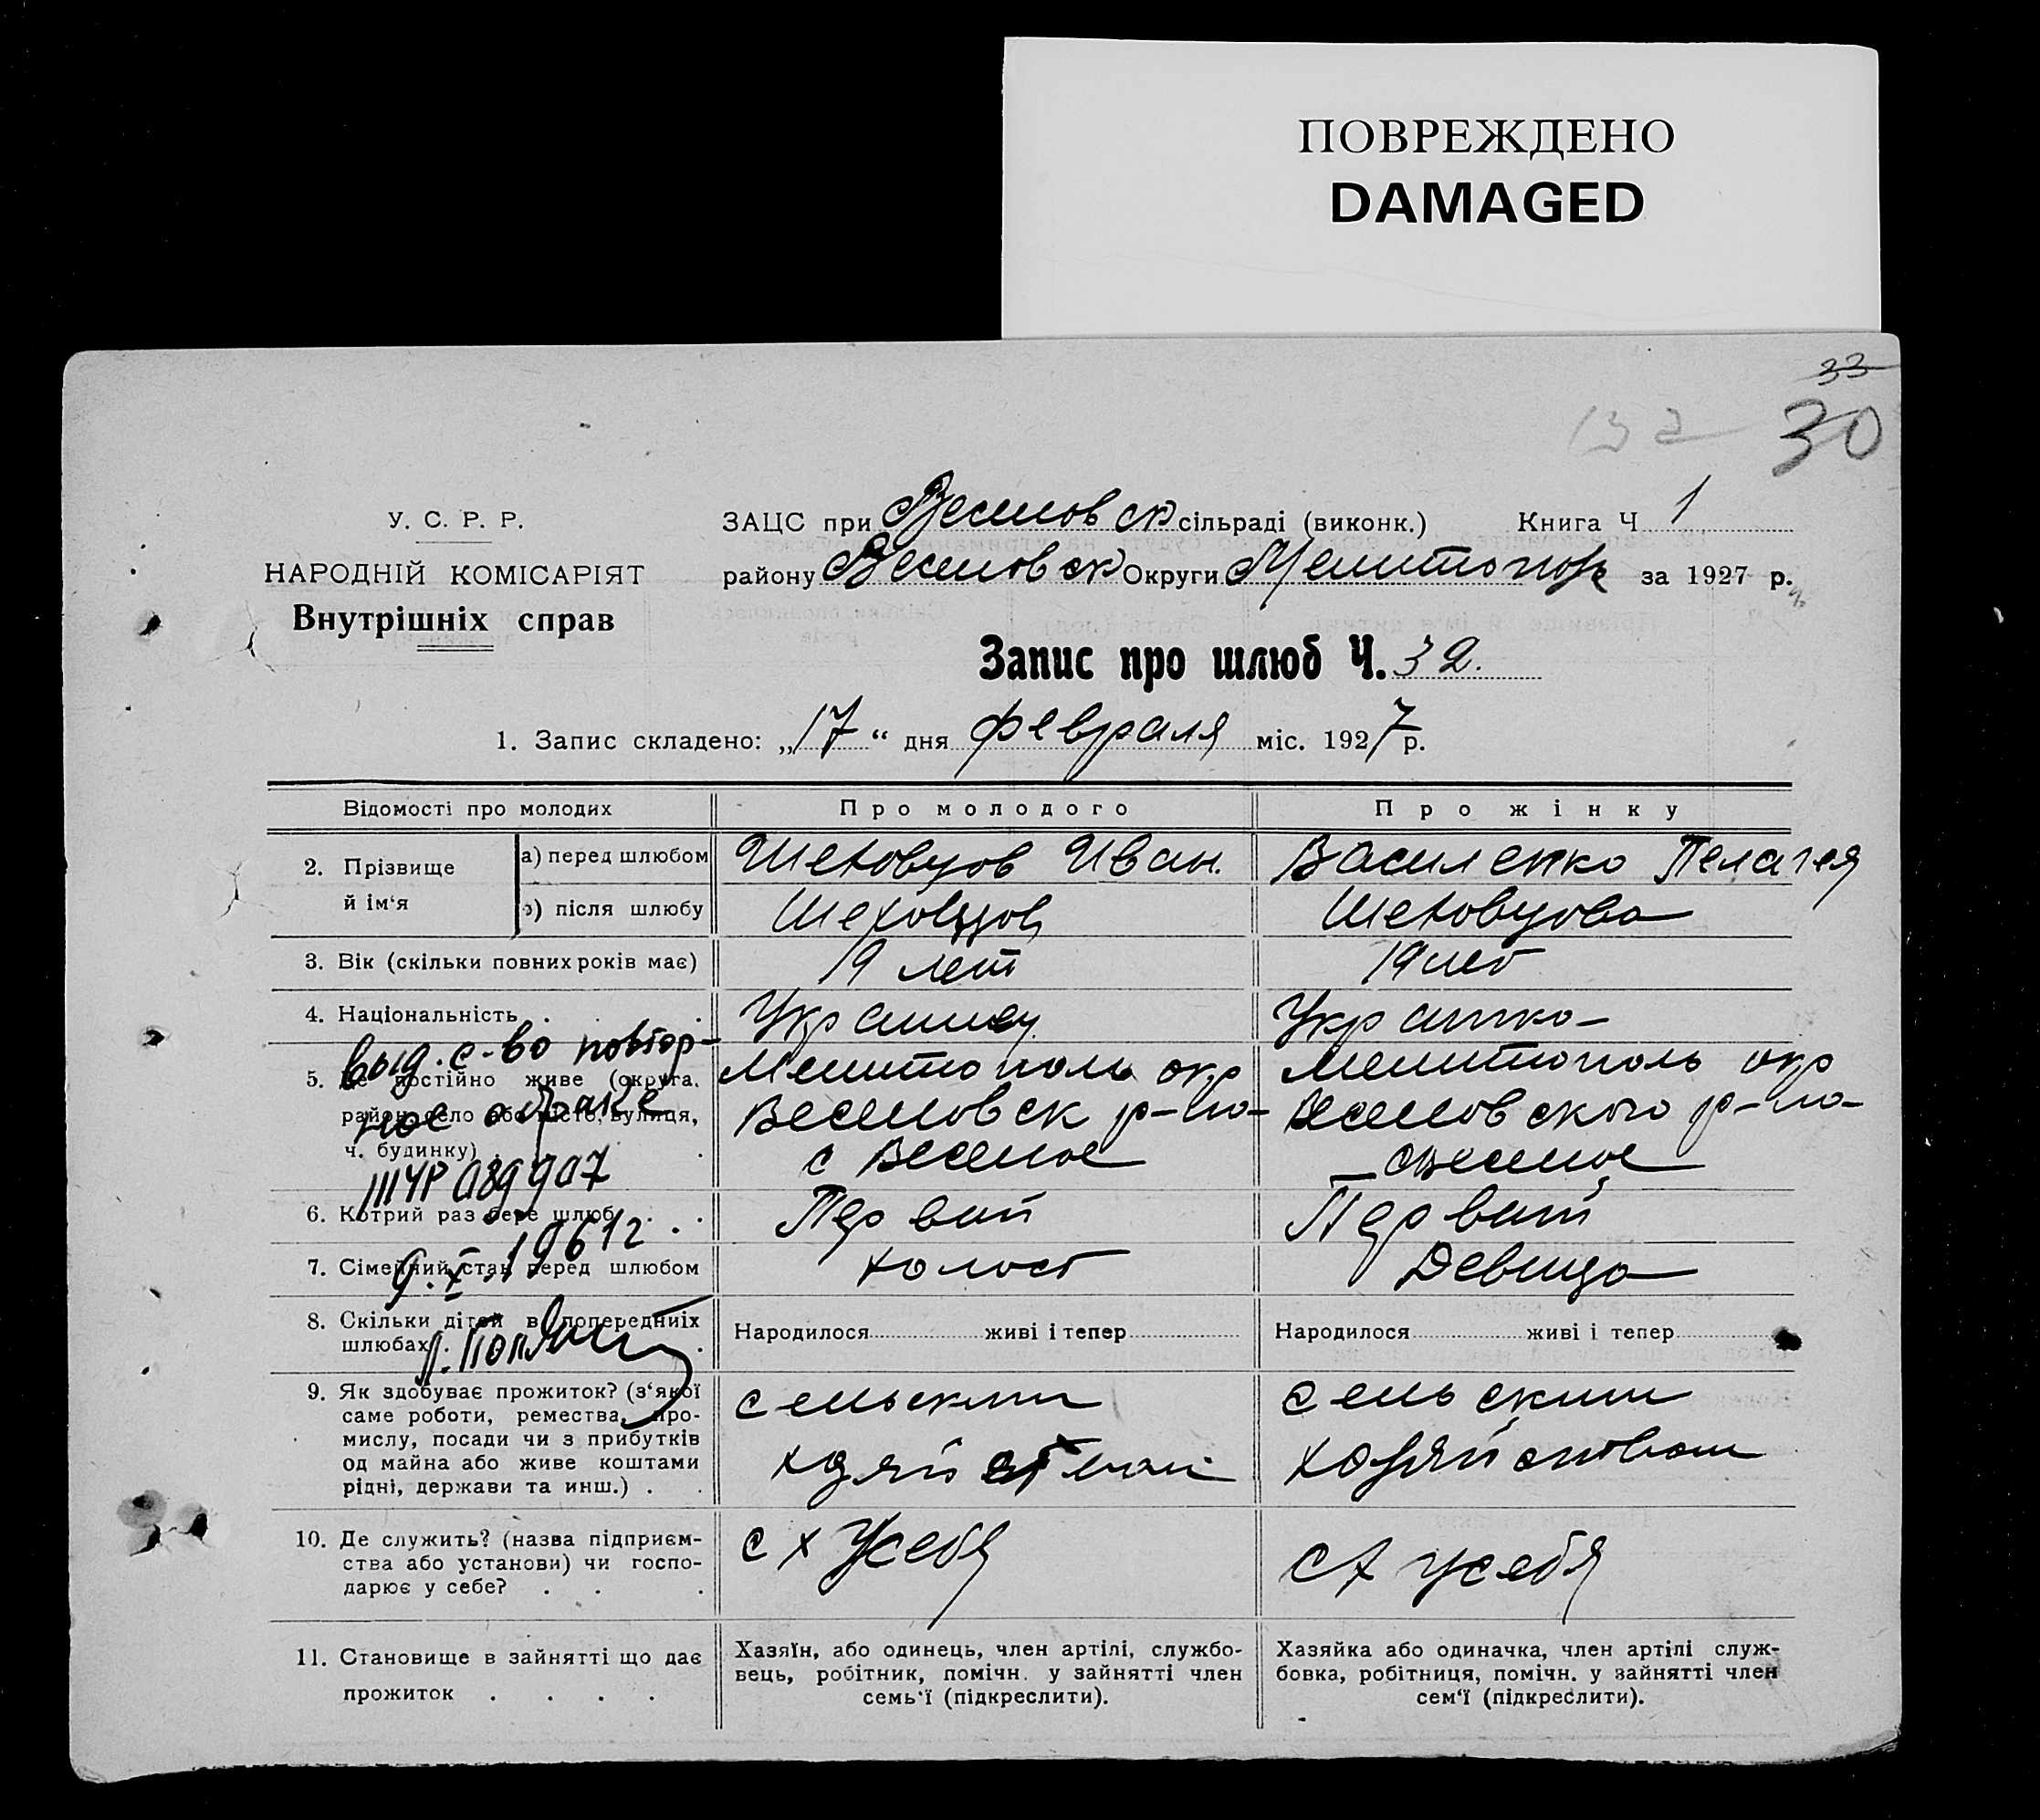 ПОВРЕЖДЕНО
DAMAGED
33
132
30
У. С. Р. Р.
НАРОДНІЙ КОМІСАРІЯТ
Внутрішніх справ
ЗАЦС при Веселовск сільраді (виконк.) Книга Ч 1
району Веселовск Округи Мелитополь за 1927 р.
Запис про шлюб Ч. 32.
1. Запис складено: „17“ дня февраля міс. 1927 р.
Відомості про молодих Про молодого Про жінку
2. Прізвище й ім‘я
а) перед шлюбом Шеховцов Иван. Василенко Пелагея
б) після шлюбу Шеховцов Шеховцова
3. Вік (скільки повних років має) 19 лет 19 лет
4. Національність . . Украинец Украинка
выд. с-во повтор-
ное о браке
ШЧР 089907
9.X.1961г.
5. Де постійно живе (округа,
район, село або місто, вулиця,
ч. будинку) . .
Мелитополь окр
Веселовск р-на
с Веселое
Мелитополь окр
Веселовского р-на
с Веселое
6. Котрий раз бере шлюб . . Первий Первий
7. Сімейний стан перед шлюбом холост Девица
8. Скільки дітей в попередніх
шлюбах . .
Народилося живі і тепер
Народилося живі і тепер
9. Як здобуває прожиток? (з‘якої
саме роботи, ремества, про-
мислу, посади чи з прибутків
од майна або живе коштами
рідні, держави та инш.) . .
сельским
сельским
хозяйством
10. Де служить? (назва підприєм-
ства або установи) чи госпо-
дарює у себе? . . .
с х У себя
с х у себя
11. Становище в зайнятті що дає
прожиток . . . .
Хазяїн, або одинець, член артілі, службо-
вець, робітник, помічн. у зайнятті член
семь‘ї (підкреслити).
Хазяйка або одиначка, член артілі служ-
бовка, робітниця, помічн. у зайнятті член
сем‘ї (підкреслити).